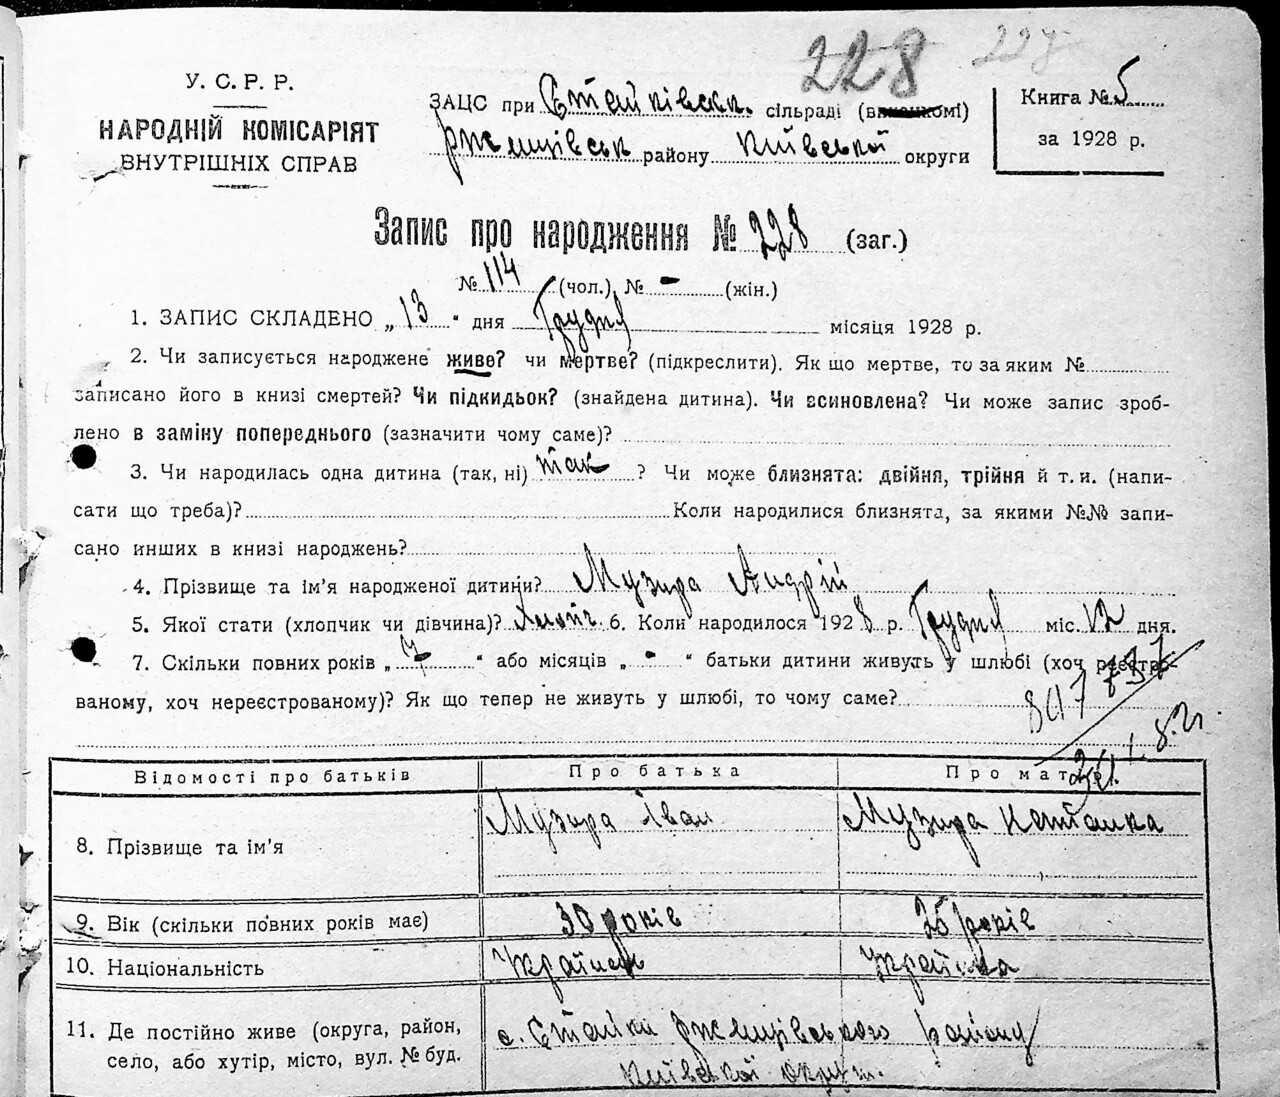 228 227
У. С. Р. Р.
НАРОДНІЙ КОМІСАРІЯТ
ВНУТРІШНІХ СПРАВ
ЗАЦС при Стайківськ. сільраді (виконкомі)
Ржищівськ району Київської округи
Книга № 5
за 1928 р.
Запис про народження № 228 (заг.)
№ 114 (чол.) № - (жін.)
1. ЗАПИС СКЛАДЕНО „ 13 “ дня Грудня місяця 1928 р.
2. Чи записується народжене живе? чи мертве? (підкреслити). Як що мертве, то за яким №
записано його в книзі смертей? Чи підкидьок? (знайдена дитина). Чи всиновлена? Чи може запис зроб-
лено в заміну попереднього (зазначити чому саме)?
3. Чи народилась одна дитина (так, ні) так ? Чи може близнята: двійня, трійня й т. и. (напи-
сати що треба)? Коли народилися близнята, за якими №№ запи-
сано инших в книзі народжень?
4. Прізвище та ім’я народженої дитини? Музира Андрій
5. Якої стати (хлопчик чи дівчина)? Хлопч 6. Коли народилося 1928 р. Грудня міс. 12 дня.
7. Скільки повних років „ 7 “ або місяців „ - “ батьки дитини живуть у шлюбі (хоч реєстро-
ваному, хоч нереєстрованому)? Як що тепер не живуть у шлюбі, то чому саме?
Відомості про батьків Про батька Про матір
8. Прізвище та ім’я Музира Іван Музира Наталка
9. Вік (скільки повних років має) 30 років 26 років
10. Національність Українець Українка
11. Де постійно живе (округа, район,
село, або хутір, місто, вул. № буд.
с. Стайки Ржищівського району
Київської округи.